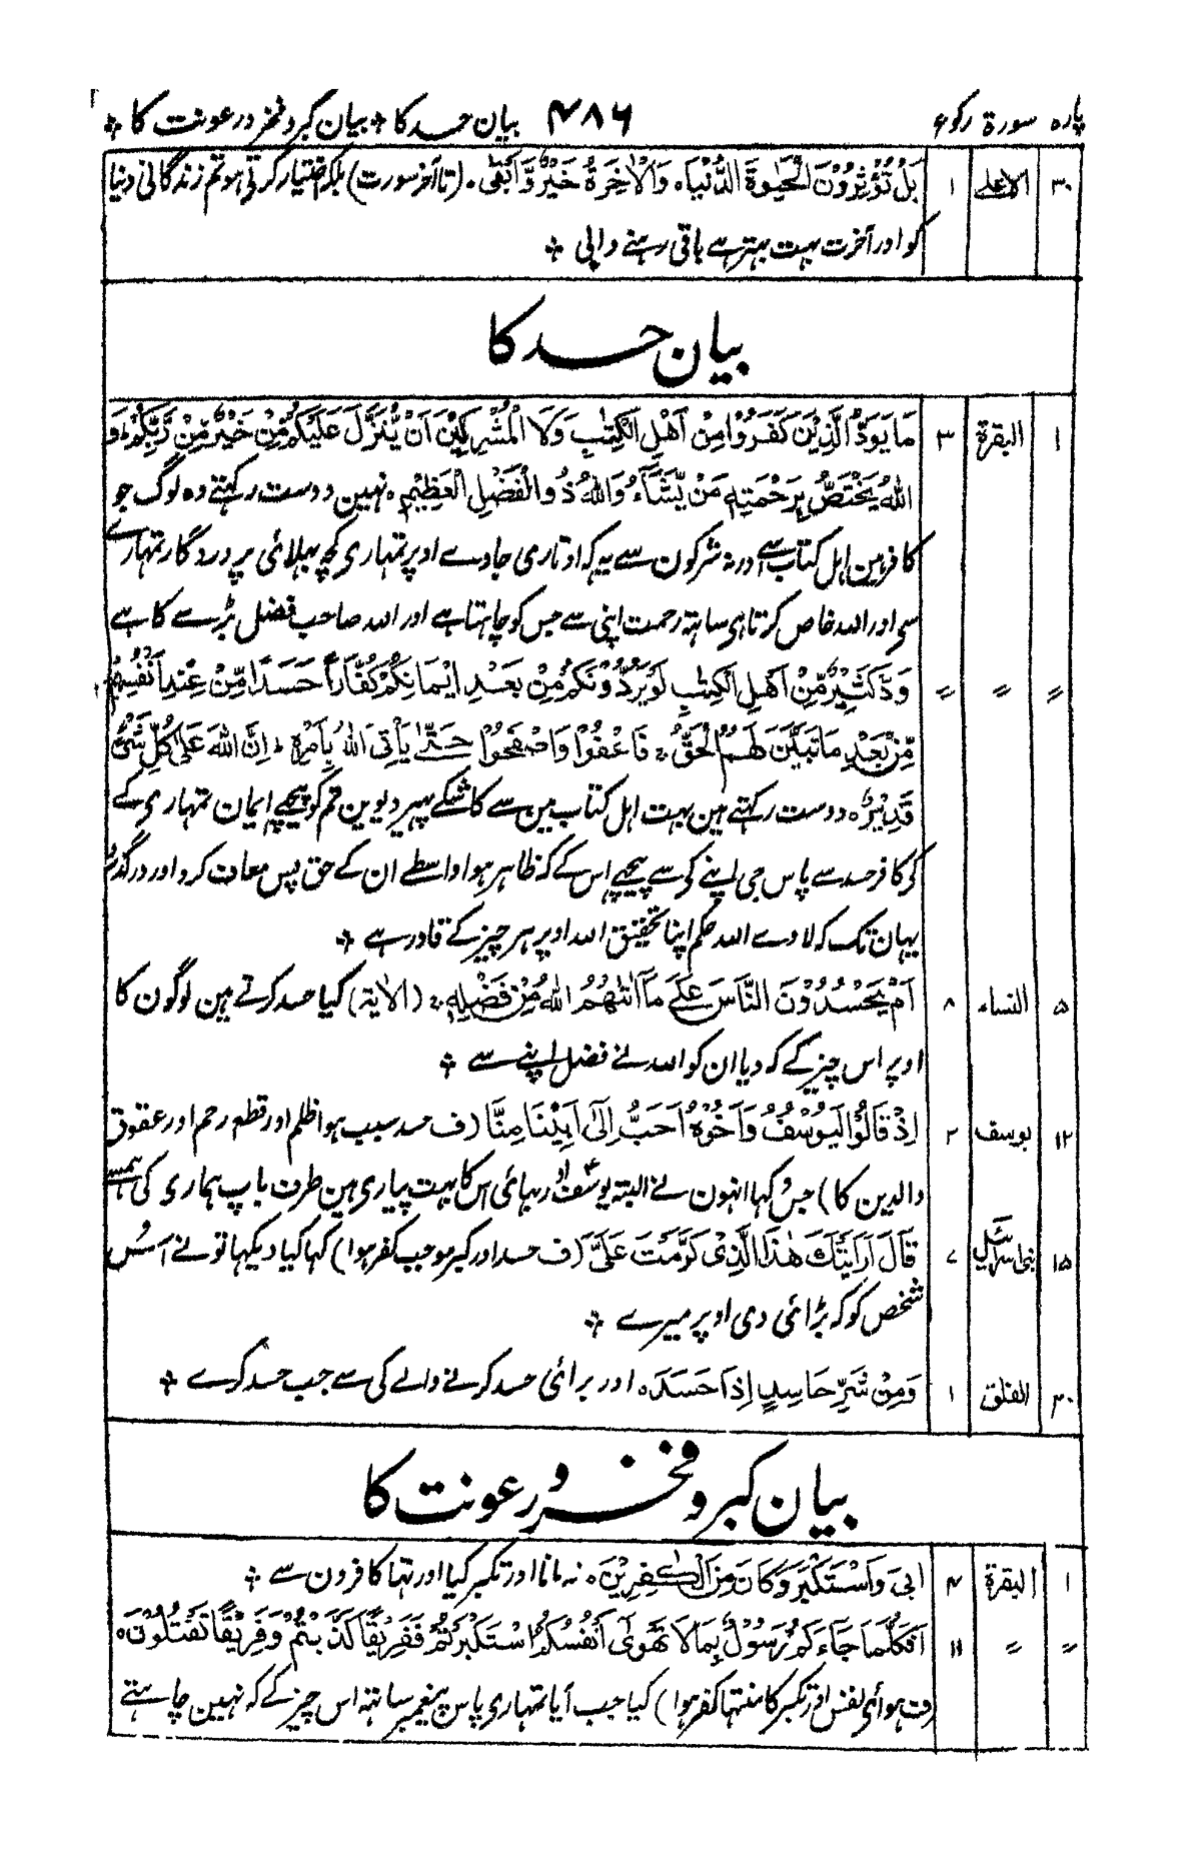 پارہ سورۃ رکوع ۴۸۶ بیان حسد کا ۞ بیان کبر و فخر و رعونت کا ۞
۳۰ الاعلے ۱ بَلْ تُؤْثِرُوْنَ الْحَيٰوةَ الدُّنْيَا٥ وَالْاٰخِرَةُ خَيْرٌ وَّاَبْقٰى٥ (تا آخر سورت) بلکہ اختیار کرتی ہو تم زندگانی دنیا
کو اور آخرت بہت بہتر ہے باقی رہنے والی ۞
بیان حسد کا
۱ البقرۃ ۳ مَا يَوَدُّ الَّذِيْنَ كَفَرُوْا مِنْ اَهْلِ الْكِتٰبِ وَلَا الْمُشْرِكِيْنَ اَنْ يُّنَزَّلَ عَلَيْكُمْ مِّنْ خَيْرٍ مِّنْ رَّبِّكُمْ وَ
اللّٰهُ يَخْتَصُّ بِرَحْمَتِهٖ مَنْ يَّشَآءُ وَاللّٰهُ ذُو الْفَضْلِ الْعَظِيْمِ٥ نہین دوست رکہتے وہ لوگ جو
کافر ہین اہل کتاب سے اور نہ مشرکون سے یہ کہ اوتاری جاوے اوپر تمہاری کچھ بہلائی پروردگار تمہارے
سی اور اللہ خاص کرتا ہی ساتہ رحمت اپنی سے جس کو چاہتا ہے اور اللہ صاحب فضل بڑے کا ہے
〃 〃 〃 وَدَّ كَثِيْرٌ مِّنْ اَهْلِ الْكِتٰبِ لَوْ يَرُدُّوْنَكُمْ مِّنْ بَعْدِ اِيْمَانِكُمْ كُفَّارًا حَسَدًا مِّنْ عِنْدِ اَنْفُسِهِمْ
مِّنْ بَعْدِ مَا تَبَيَّنَ لَهُمُ الْحَقُّ فَاعْفُوْا وَاصْفَحُوْا حَتّٰى يَاْتِىَ اللّٰهُ بِاَمْرِهٖ ؕ اِنَّ اللّٰهَ عَلٰى كُلِّ شَىْءٍ
قَدِيْرٌ٥ دوست رکہتے ہین بہت اہل کتاب مین سے کاشکے پہیر دیوین تم کو پیچہے ایمان تمہاری کے
کی کافر حسد سے پاس جی اپنے کی سے پیچہے اس کے کہ ظاہر ہوا واسطے ان کے حق پس معاف کرو اور درگذرو
یہان تک کہ لاوے اللہ حکم اپنا تحقیق اللہ اوپر ہر چیز کے قادر ہے ۞
۵ النساء ۸ اَمْ يَحْسُدُوْنَ النَّاسَ عَلٰى مَآ اٰتٰىهُمُ اللّٰهُ مِنْ فَضْلِهٖ (الآیۃ) کیا حسد کرتے ہین لوگون کا
اوپر اس چیز کے کہ دیا ان کو اللہ نے فضل اپنے سے ۞
۱۲ یوسف ۲ اِذْ قَالُوْا لَيُوْسُفُ وَاَخُوْهُ اَحَبُّ اِلٰٓى اَبِيْنَا مِنَّا (ف حسد سبب ہوا ظلم اور قطع رحم اور عقوق
والدین کا) جس کہا انہون نے البتہ یوسف اور بہائی اس کا بہت پیاری ہین طرف باپ ہماری کی ہمسے
۱۵ بنی اسرائیل ۷ قَالَ اَرَءَيْتَكَ هٰذَا الَّذِىْ كَرَّمْتَ عَلَىَّ (ف حسد اور کبر موجب کفر ہوا) کہا کیا دیکہا تو نے اس
شخص کو کہ بڑائی دی اوپر میرے ۞
۳۰ الفلق ۱ وَمِنْ شَرِّ حَاسِدٍ اِذَا حَسَدَ٥ اور برائی حسد کرنے والے کی سے جب حسد کرے ۞
بیان کبر و فخر و رعونت کا
۱ البقرۃ ۴ اَبٰى وَاسْتَكْبَرَ وَكَانَ مِنَ الْكٰفِرِيْنَ٥ نہ مانا اور تکبر کیا اور تہا کافرون سے ۞
〃 〃 ۱۱ اَفَكُلَّمَا جَآءَكُمْ رَسُوْلٌ بِمَا لَا تَهْوٰٓى اَنْفُسُكُمُ اسْتَكْبَرْتُمْ فَفَرِيْقًا كَذَّبْتُمْ وَفَرِيْقًا تَقْتُلُوْنَ٥
(ف ہوائے نفس اور تکبر کا منتہا کفر ہوا) کیا جب آیا تمہاری پاس پیغمبر ساتہ اس چیز کے کہ نہین چاہتے